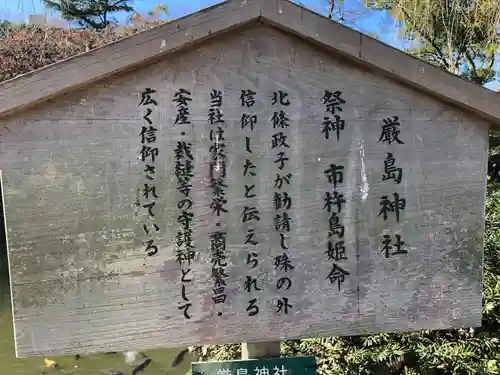 厳島神社
祭神 市杵島姫命
北條政子が勧請し殊の外
信仰したと伝えられる
当社は家門繁栄・商売繁昌・
安産・裁縫等の守護神として
広く信仰されている
厳島神社